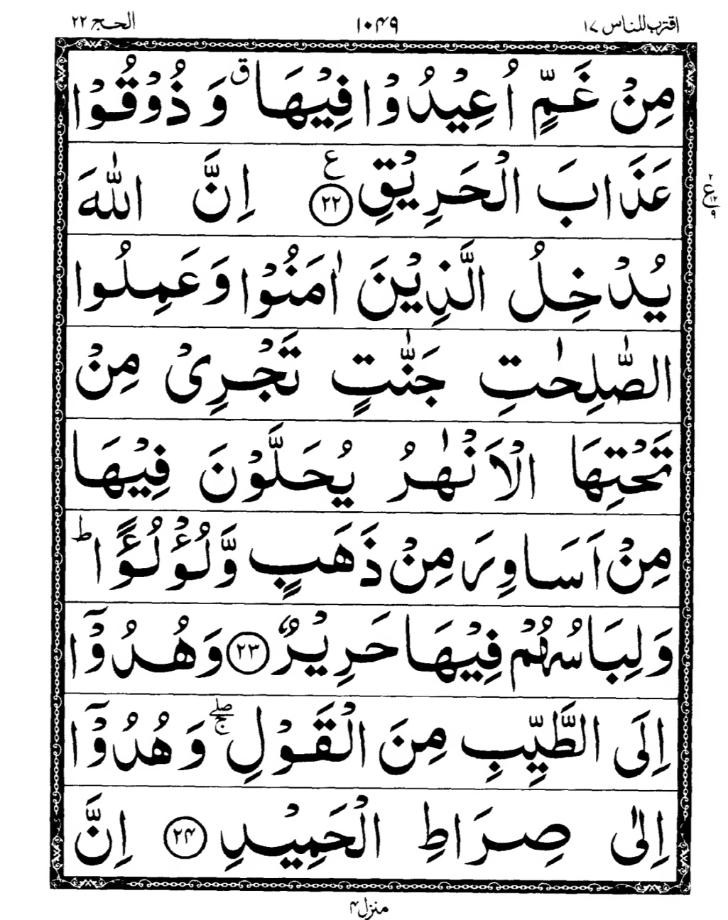 اقترب للناس ۱۷ ۱۰۴۹ الحج ۲۲
مِنْ غَمٍّ اُعِيْدُوْا فِيْهَا ۗق وَ ذُوْقُوْا
عَذَابَ الْحَرِيْقِ ﴿۲۲﴾ ع اِنَّ اللّٰهَ
يُدْخِلُ الَّذِيْنَ اٰمَنُوْا وَعَمِلُوا
الصّٰلِحٰتِ جَنّٰتٍ تَجْرِىْ مِنْ
تَحْتِهَا الْاَنْهٰرُ يُحَلَّوْنَ فِيْهَا
مِنْ اَسَاوِرَ مِنْ ذَهَبٍ وَّلُؤْلُؤًا ؕ
وَلِبَاسُهُمْ فِيْهَا حَرِيْرٌ ﴿۲۳﴾ وَهُدُوْۤا
اِلَى الطَّيِّبِ مِنَ الْقَوْلِ ۖۚ وَهُدُوْۤا
اِلٰى صِرَاطِ الْحَمِيْدِ ﴿۲۴﴾ اِنَّ
۲
ع
۱۲
۹
منزل ۴